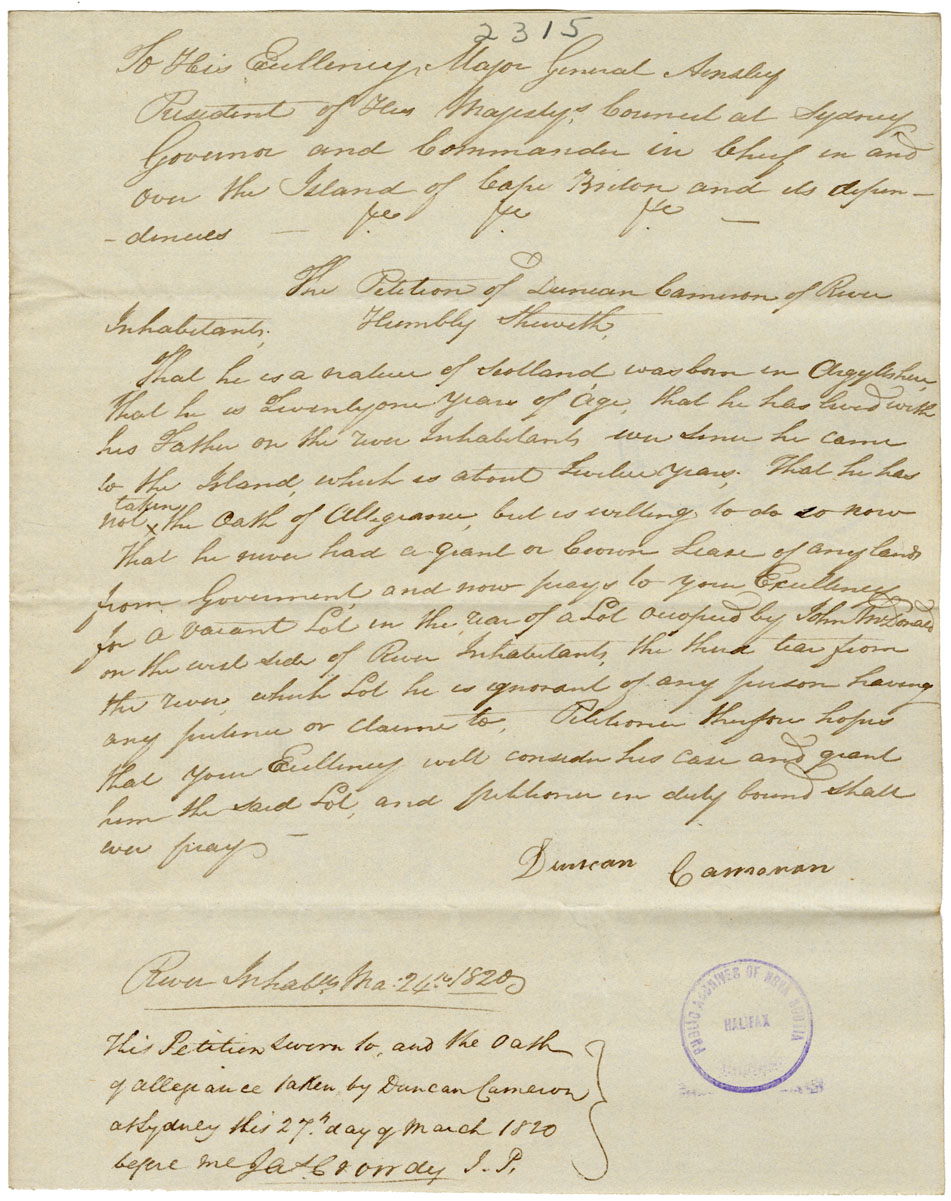 2315
To His Excellency, Major General Ainsley
President of His Majestys, Council at Sydney
Governor and Commander in Chief in and
over the Island of Cape Briton and its depen-
-dencies — &c &c &c —
The Petition of Duncan Cameron of River
Inhabitants, Humbly Sheweth,
That he is a native of Scotland was born in Argyleshire,
that he is Twentyone years of Age, that he has lived with
his Father on the river Inhabitants ever since he came
to the Island, which is about Twelve years, That he has
not taken the Oath of Allegiance, but is willing to do so now
That he never had a grant or Crown Lease of any lands
from Goverment, and now prays to your Excellency
for a vacant Lot in the rear of a Lot occupied by John McDonald
on the west side of River Inhabitants, the third tear from
the river, which Lot he is ignorant of any person having
any pretence or claime to, Petitioner therfore hopes
that your Excellency will consider his case and grant
him the said Lot, and petitioner in duty bound shall
ever pray —
Duncan Camoran
River Inhabts, Ma. 24th 1820
This Petition sworn to, and the Oath
of allegiance taken by Duncan Cameron
at Sydney this 27th day of March 1820
before me Jas Crowdy J. P.
PUBLIC ARCHIVES OF NOVA SCOTIA
HALIFAX